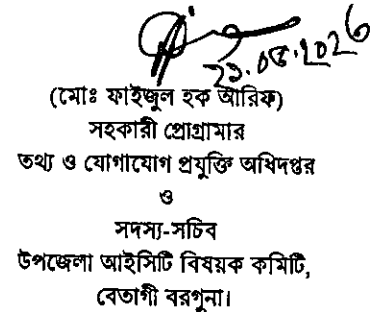 ২১.০৪.২০২৬
(মোঃ ফাইজুল হক আরিফ)
সহকারী প্রোগ্রামার
তথ্য ও যোগাযোগ প্রযুক্তি অধিদপ্তর
ও
সদস্য-সচিব
উপজেলা আইসিটি বিষয়ক কমিটি,
বেতাগী বরগুনা।